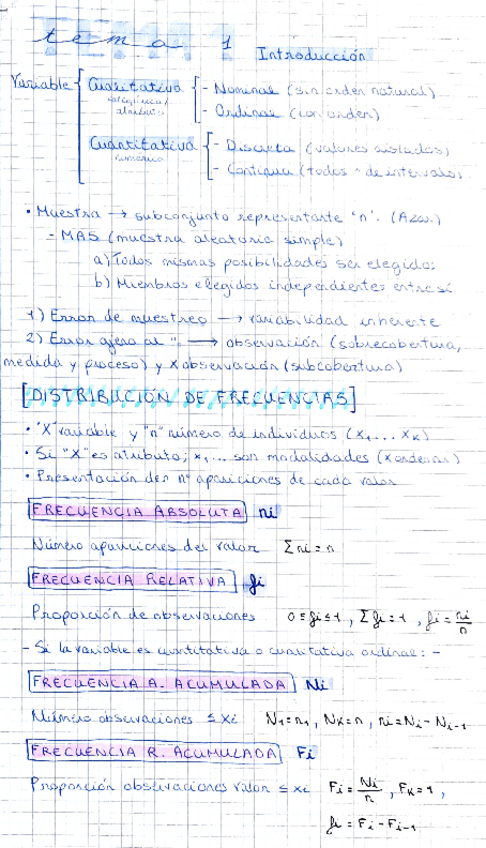 tema 1 Introducción
Variable { Cualitativa { - Nominal (sin orden natural)
categórica/
atributos
- Ordinal (con orden)
Cuantitativa { - Discreta (valores aislados)
numérica
- Continua (todos " de intervalo)
• Muestra → subconjunto representante "n". (Azar)
- MAS (muestra aleatoria simple)
a) Todos mismas posibilidades ser elegidos
b) Miembros elegidos independientes entre sí
1) Error de muestreo → variabilidad inherente
2) Error ajeno al " → observación (sobrecobertura,
medida y proceso) y X observación (subcobertura)
[DISTRIBUCIÓN DE FRECUENCIAS]
• "X" variable y "n" número de individuos (x₁ ... xₖ)
• Si "X" es atributo; x₁ ... son modalidades (X orden)
• Presentación del nº apariciones de cada valor
FRECUENCIA ABSOLUTA ni
Número apariciones del valor Σni = n
FRECUENCIA RELATIVA fi
Proporción de observaciones 0 ≤ fi ≤ 1, Σfi = 1, fi = ni/n
- Si la variable es cuantitativa o cualitativa ordinal: -
FRECUENCIA A. ACUMULADA Ni
Número observaciones ≤ xi N₁ = n₁, Nₖ = n, ni = Ni - Ni-1
FRECUENCIA R. ACUMULADA Fi
Proporción observaciones valor ≤ xi Fi = Ni/n, Fₖ = 1,
fi = Fi - Fi-1